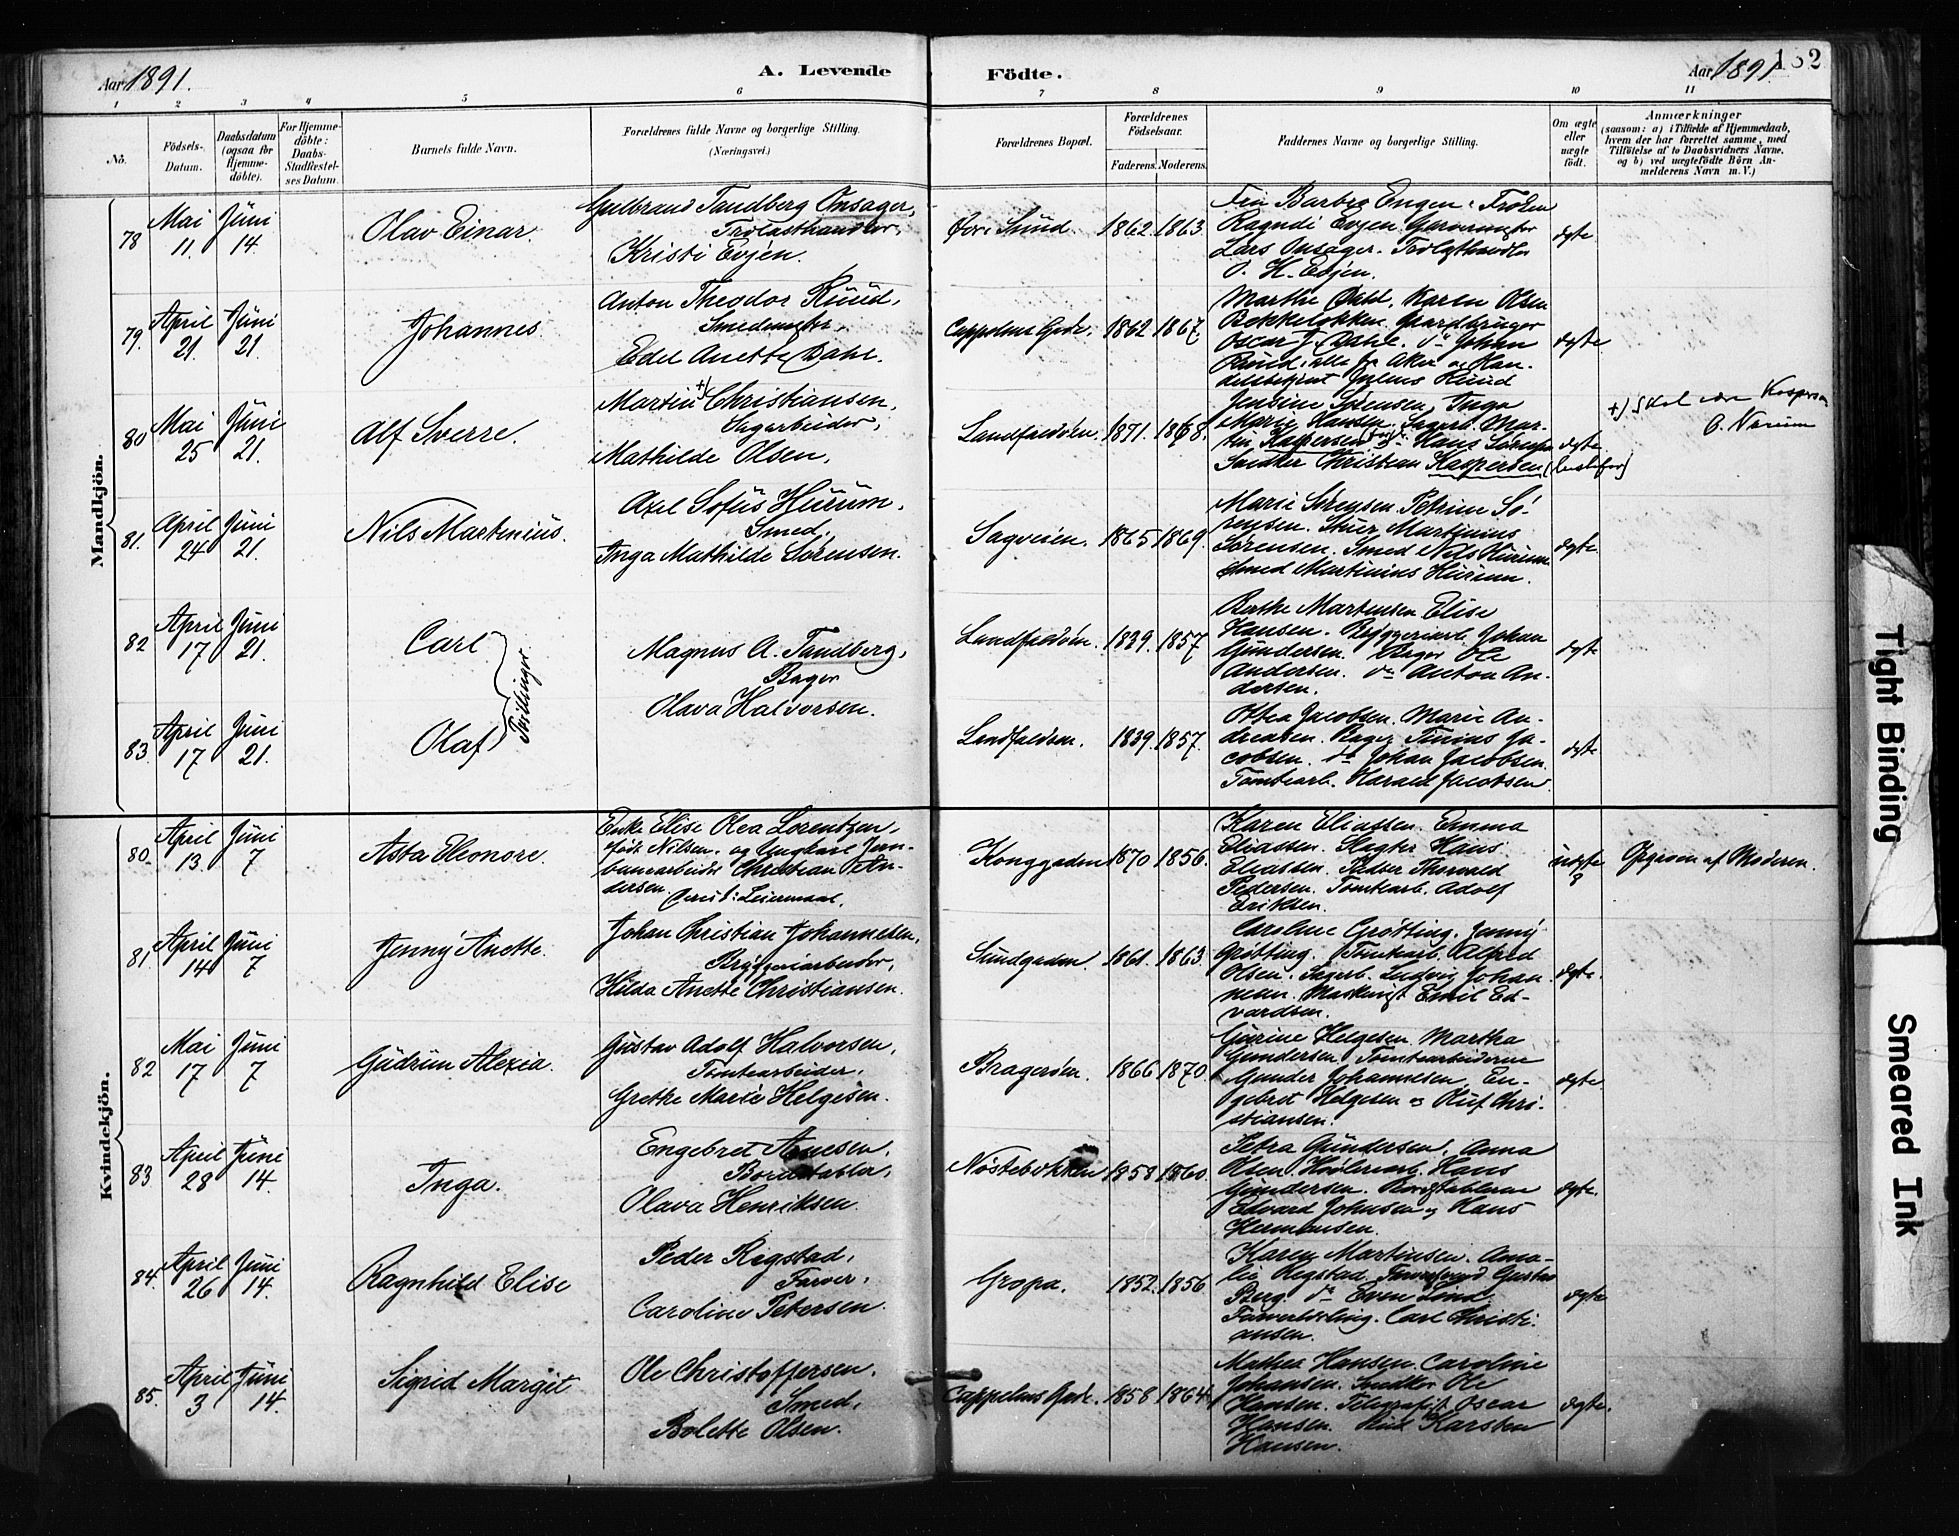 Aar 1891.
A. Levende
Födte.
Aar 1891
1 2 3 4 5 6 7 8 9 10 11
No.
Födsels-Datum.
Daabsdatum (ogsaa for Hjemme-döbte).
For Hjemme-döbte: Daabs-Stadfestel-ses Datum.
Barnets fulde Navn.
Forældrenes fulde Navne og borgerlige Stilling.
(Næringsvei.)
Forældrenes Bopæl.
Forældrenes Födselsaar.
Faderens. Moderens.
Faddernes Navne og borgerlige Stilling.
Om ægte eller uægte födt.
Anmærkninger
(saasom: a) i Tilfælde af Hjemmedaab,
hvem der har forrettet samme, med
Tilföielse af to Daabsvidners Navne.
og b) ved uægtefödte Börn An-
melderens Navn m. V.)
Mandkjön.
78 Mai 11 Juni 14. Olav Einar.
Gulbrand Tandberg Onsager,
Trælasthandler,
Kristi Evjen.
Övre Sund 1862. 1863.
Engen. Fröken
Ragndi Evjen. Garvermester
Lars Onsager. Trælasthandler
O. H. Evjen.
ægte
79. April 21. Juni 21. Johannes.
Anton Theodor Ruud,
Smedemester,
Edel Anette Dahl.
Cappelens Gade. 1862 1867.
Marthe Dahl, Karen Olsen
Bekkelökken. Gaardbruger
Oscar T. Dahl. do Johan
Ruud, alle fra Aker og Han-
delsbetjent Julius Ruud
ægte
80 Mai 25 Juni 21. Alf Sverre.
Martin +) Christiansen,
Sagarbeider,
Mathilde Olsen.
Landfaldöen. 1871. 1868.
Jensine Sörensen, Inga
Marie Hansen. Sagarb. Mar-
tin Kaspersen do Hans Sörensen
Snedker Christian Kaspersen
ægte
+) Skal være Kaspersen
81. April 24 Juni 21. Nils Martinius.
Axel Sofus Hurum,
Smed,
Inga Mathilde Sörensen.
Sagveien. 1865 1869.
Marie Sörensen. Petrine Sö-
rensen. Stuer Martinius
Sörensen. Smed Nils Hurum
Smed Martinius Hurum.
ægte
82 April 17 Juni 21. Carl
Tvillinger.
Magnus A. Tandberg,
Bager
Olava Halvorsen.
Landfaldöen. 1839. 1857
Berthe Martinsen Elise
Hansen. Bryggeriarb. Johan
Gundersen. Bager Ole
Andersen. do Anton An-
dersen.
ægte
83 April 17 Juni 21. Olaf
Landfaldöen. 1839. 1857.
Othea Jacobsen. Marie An-
dreasen. Bager Tinius Ja-
cobsen. do Johan Jacobsen.
Tomtearb. Harald Jacobsen.
ægte
Kvindekjön.
80. April 13. Juni 7 Asta Eleonore.
Enke Elise Olea Lorentzen,
født Nilsen. og Ungkarl Jern-
banearbeider Christian An-
dersen
Leiermaal.
Konggaden 1870 1856.
Karen Eliassen. Emma
Eliassen. Slagter Hans
Eliassen. Thorvald
Pedersen. Tomtearb. Adolf
Eriksen.
uægte
Opgiven af Moderen.
81. April 14 Juni 7 Jenny Anette.
Johan Christian Johannesen,
Bryggeriarbeider,
Hilda Anette Christiansen.
Sundgaden. 1861. 1863.
Caroline Grötting. Jenny
Grötting. Tomtearb. Alfred
Olsen. Sagarb. Ludvig Johan
Maskinist Emil Ed-
vardsen.
ægte.
82 Mai 17 Juni 7 Gudrun Alexia.
Gustav Adolf Halvorsen,
Tomtearbeider,
Grethe Marie Helgesen.
Bragerøen. 1866 1870.
Gurine Helgesen. Martha
Gundersen Tomtearbeiderne
Gunder Johannesen, En-
gebret Helgesen og Oluf Chri-
stiansen.
ægte
83 April 28 Juni 14. Inga.
Engebret Arnesen,
Bordstabler,
Olava Henriksen.
Nöstebakken 1858 1860.
Petra Gundersen, Anna
Olsen. Hövleriarb. Hans
Gundersen. Bordstablerne
Edvard Johnsen og Hans
Hermansen.
ægte.
84. April 26 Juni 14. Ragnhild Elise
Peder Regstad,
Farver,
Caroline Petersen.
Gropa. 1852. 1856.
Karen Martinsen. Ama-
lie Regstad. Farversvend Gustav
Berg. do Even Lind
Farverlærling. Carl Christi-
ansen.
ægte
85. April 3 Juni 14. Sigrid Margit
Ole Christoffersen.
Smed,
Bolette Olsen.
Cappelens Gade. 1858 1864.
Mathea Hansen. Caroline
Johansen. Snedker Ole
Hansen. Telegrafist Oscar
Hansen. Karsten
Hansen.
ægte.
Tight Binding
Smeared Ink